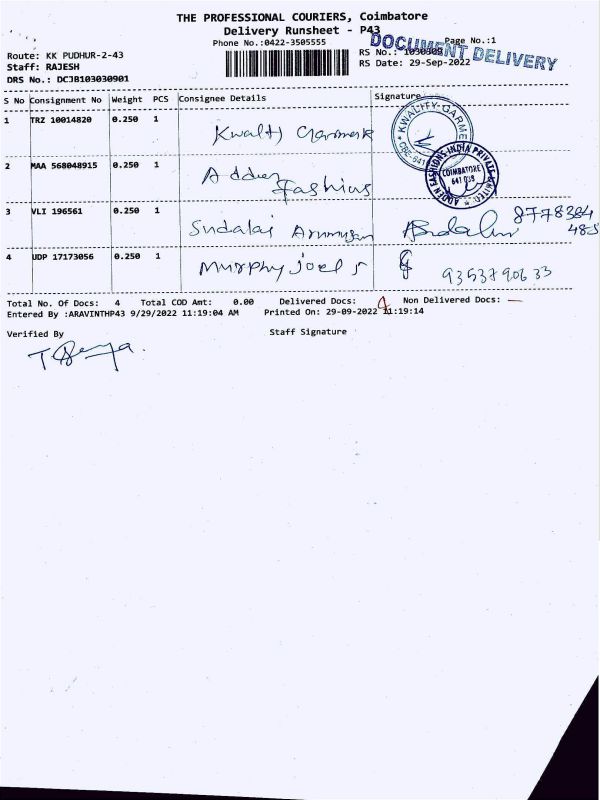 THE PROFESSIONAL COURIERS, Coimbatore
Delivery Runsheet - P43
Phone No.:0422-3505555
DOCUMENT DELIVERY
Page No.:1
Route: KK PUDHUR-2-43
RS No.:
Staff: RAJESH
RS Date: 29-Sep-2022
DRS No.: DCJB103030901
S No Consignment No Weight PCS Consignee Details Signature
1 TRZ 10014820 0.250 1 Kwality Garments
KWALITY-GARME
2 MAA 568048915 0.250 1 Adden Fashions
ADDEN FASHIONS INDIA PRIVATE LIMITED
COIMBATORE
641 038
3 VLI 196561 0.250 1 Sudalai Arumugam
8778384
485
4 UDP 17173056 0.250 1 Murphy Joel S 9353790633
Total No. Of Docs: 4 Total COD Amt: 0.00 Delivered Docs: 4 Non Delivered Docs: —
Entered By :ARAVINTHP43 9/29/2022 11:19:04 AM Printed On: 29-09-2022 11:19:14
Verified By Staff Signature